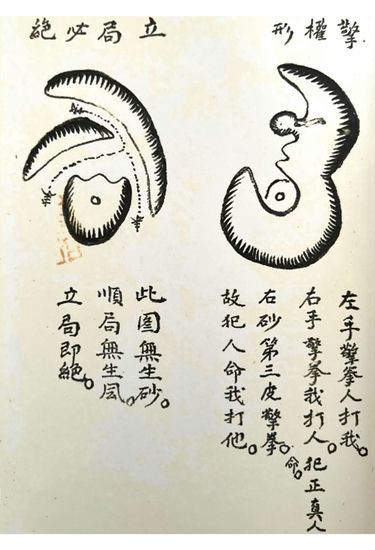 擎權形
左手擎拳人打我。
右手擎拳我打人。犯正真人
命。
右砂第三皮擎拳。
故犯人命我打他。
立局必絕
此圖無生砂。
順局無生。
立局即絕。